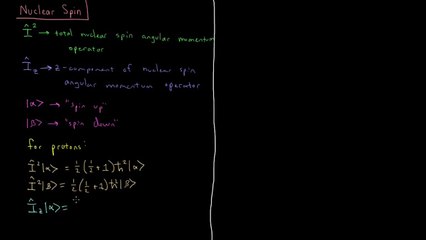 Nuclear Spin
Î² → total nuclear spin angular momentum
operator
Î_z → z-component of nuclear spin
angular momentum operator
|α> → "spin up"
|β> → "spin down"
for protons:
Î²|α> = ½(½+1)ħ²|α>
Î²|β> = ½(½+1)ħ²|β>
Î_z|α> =